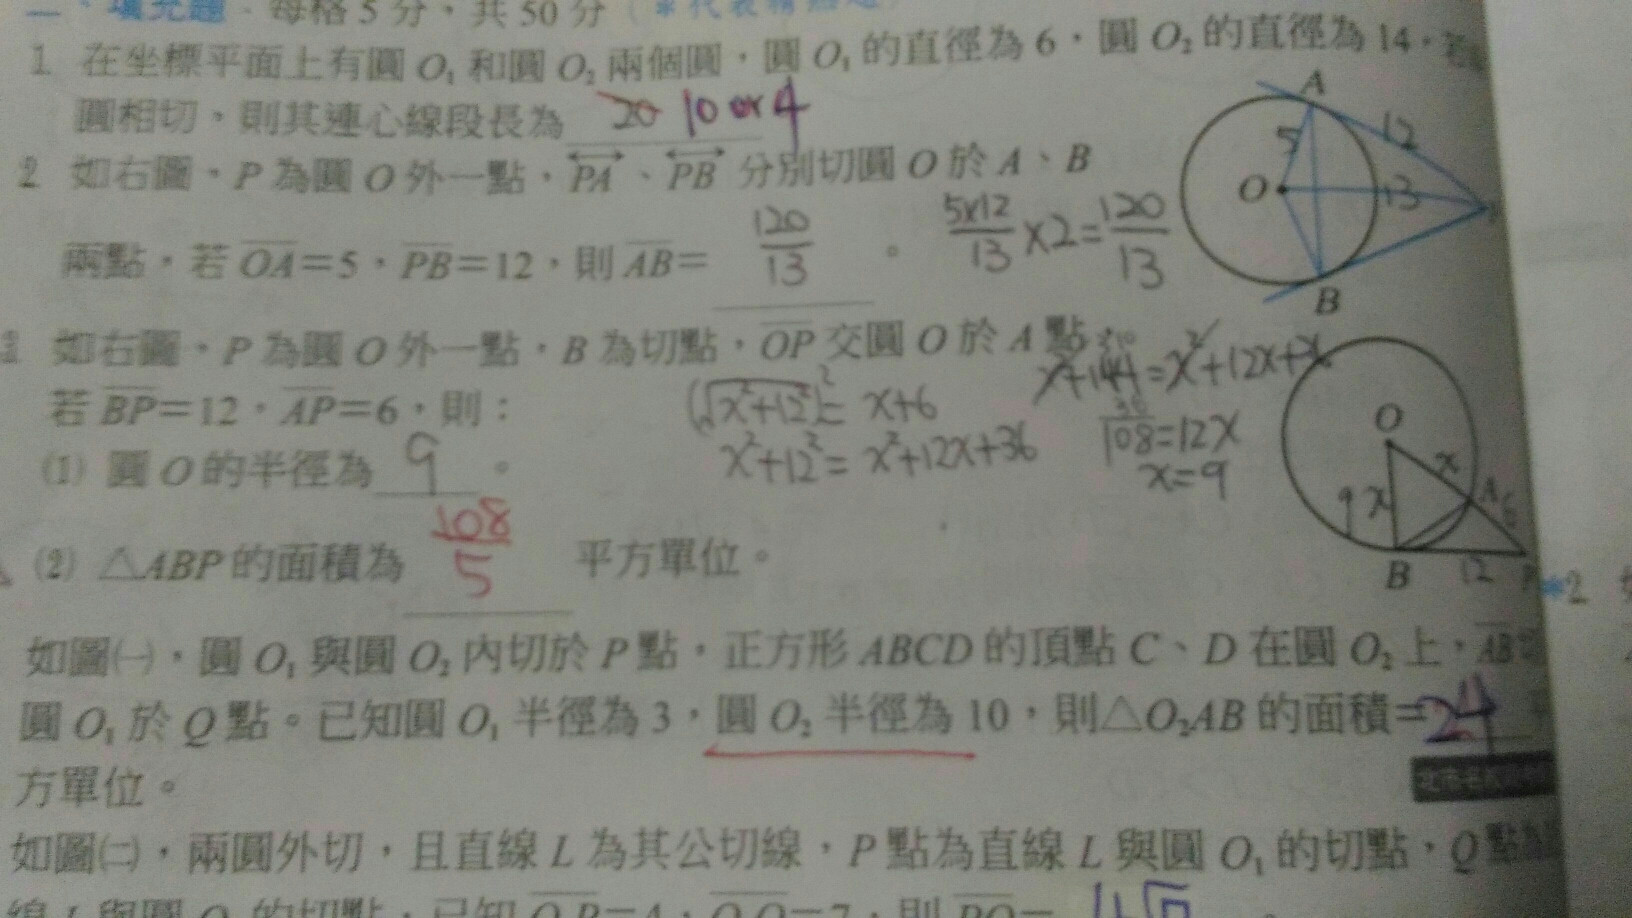 二、填充題：每格5分，共50分（＊代表
1. 在坐標平面上有圓 O₁ 和圓 O₂ 兩個圓，圓 O₁ 的直徑為 6，圓 O₂ 的直徑為 14，若
圓相切，則其連心線段長為 20 10 or 4
2. 如右圖，P 為圓 O 外一點，PA、PB 分別切圓 O 於 A、B
兩點，若 OA=5，PB=12，則 AB= 120/13 。
5×12/13 ×2=120/13
A
5
12
O
13
B
3. 如右圖，P 為圓 O 外一點，B 為切點，OP 交圓 O 於 A 點，
若 BP=12，AP=6，則：
(√x²+12²)²= x+6
x²+12²= x²+12x+36
x²+144=x²+12x+
108=12x
x=9
(1) 圓 O 的半徑為 9 。
(2) △ABP 的面積為 108/5 平方單位。
O
x
x
9
A
6
B
12
P
如圖㈠，圓 O₁ 與圓 O₂ 內切於 P 點，正方形 ABCD 的頂點 C、D 在圓 O₂ 上，AB 切
圓 O₁ 於 Q 點。已知圓 O₁ 半徑為 3，圓 O₂ 半徑為 10，則△O₂AB 的面積=24 平
方單位。
如圖㈡，兩圓外切，且直線 L 為其公切線，P 點為直線 L 與圓 O₁ 的切點，Q 點為
線 L 與圓 O₂ 的切點，已知 O₁P=4，O₂Q=7，則 PQ= 4√7 。
*2